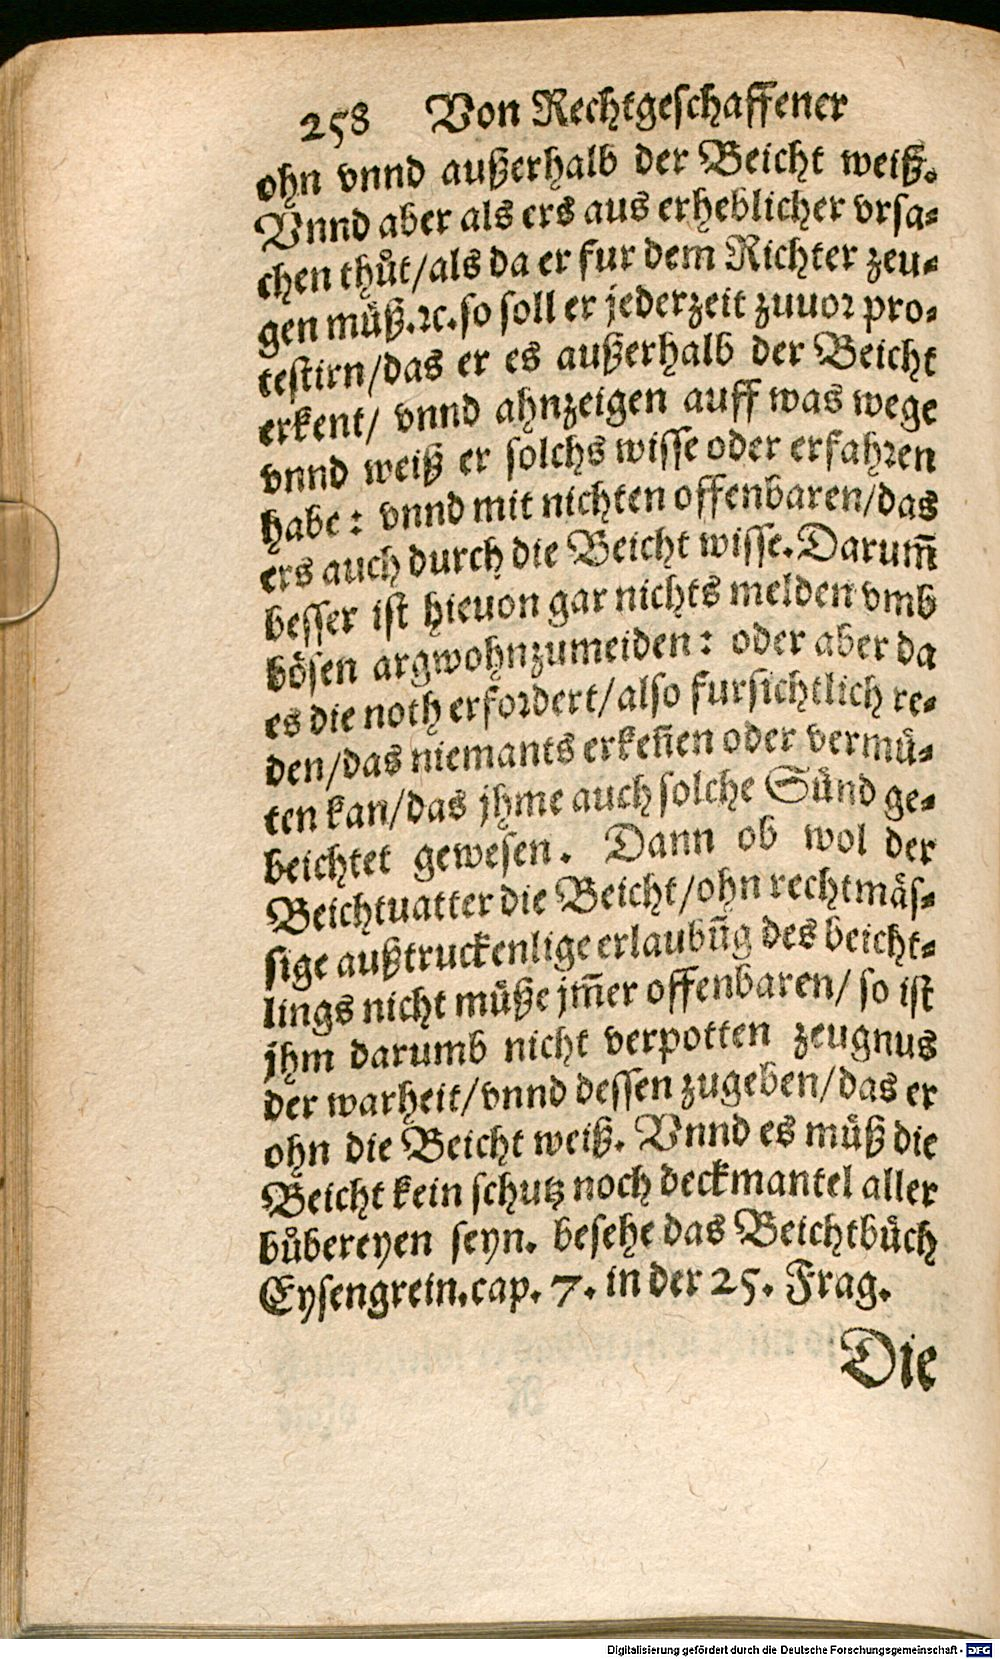 258 Von Rechtgeschaffener
ohn vnnd außerhalb der Beicht weiß.
Vnnd aber als ers aus erheblicher vrsa-
chen thůt/als da er fur dem Richter zeu-
gen můß.ꝛc.so soll er jederzeit zuuoꝛ pro-
testirn/das er es außerhalb der Beicht
erkent/ vnnd ahnzeigen auff was wege
vnnd weiß er solchs wisse oder erfahꝛen
habe: vnnd mit nichten offenbaren/das
ers auch durch die Beicht wisse. Darum̄
besser ist hieuon gar nichts melden vmb
bösen argwohnzumeiden: oder aber da
es die noth erfoꝛdert/also fursichtlich re-
den/das niemants erken̄en oder vermü-
ten kan/das jhme auch solche Sünd ge-
beichtet gewesen. Dann ob wol der
Beichtuatter die Beicht/ohn rechtmäs-
sige außtruckenlige erlaubūg des beicht-
lings nicht můße jm̄er offenbaren/ so ist
jhm darumb nicht verpotten zeugnus
der warheit/vnnd dessen zugeben/das er
ohn die Beicht weiß. Vnnd es můß die
Beicht kein schutz noch deckmantel aller
bůbereyen seyn. besehe das Beichtbůch
Eysengrein.cap. 7. in der 25. Frag.
Die
Digitalisierung gefördert durch die Deutsche Forschungsgemeinschaft - DFG